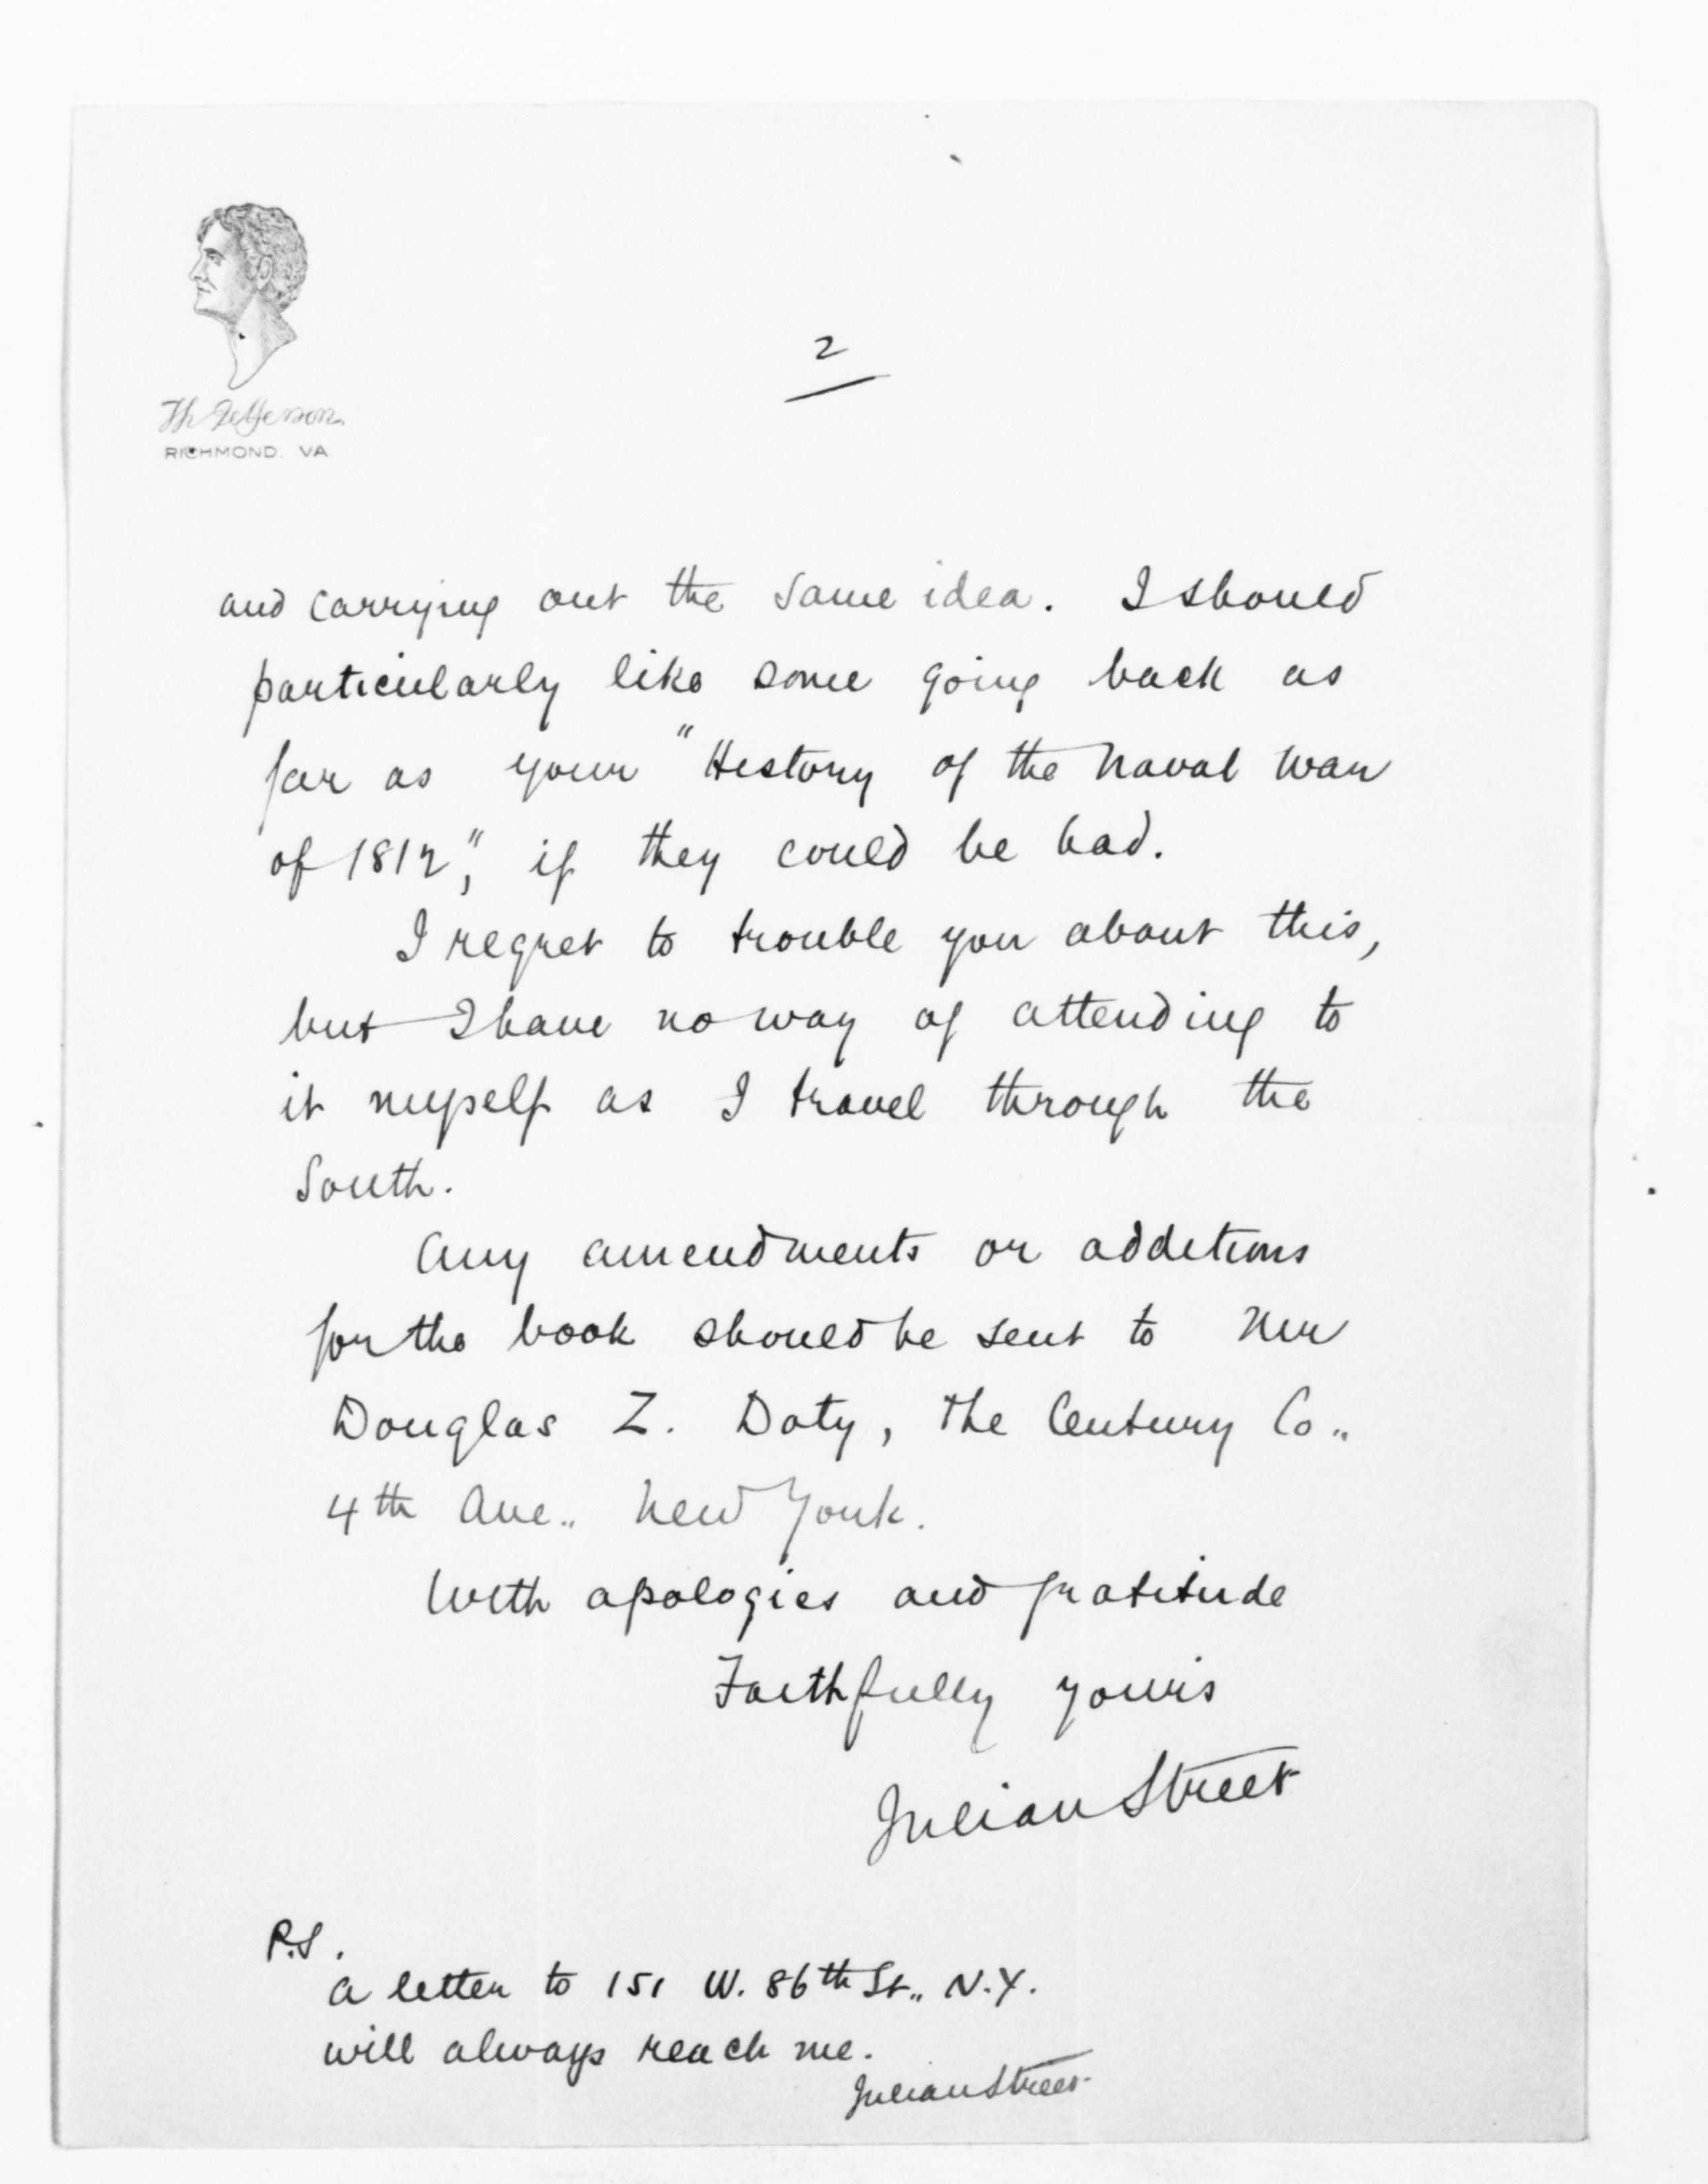 Th Jefferson
RICHMOND. VA
2
and carrying out the same idea. I should
particularly like some going back as
far as your "History of the Naval War
of 1812," if they could be had.
I regret to trouble you about this,
but I have no way of attending to
it myself as I travel through the
South.
Any amendments or additions
for the book should be sent to Mr
Douglas Z. Doty, The Century Co..
4th Ave.. New York.
With apologies and gratitude
Faithfully yours
Julian Street
P.S.
A letter to 151 W. 86th St.. N.Y.
will always reach me.
Julian Street